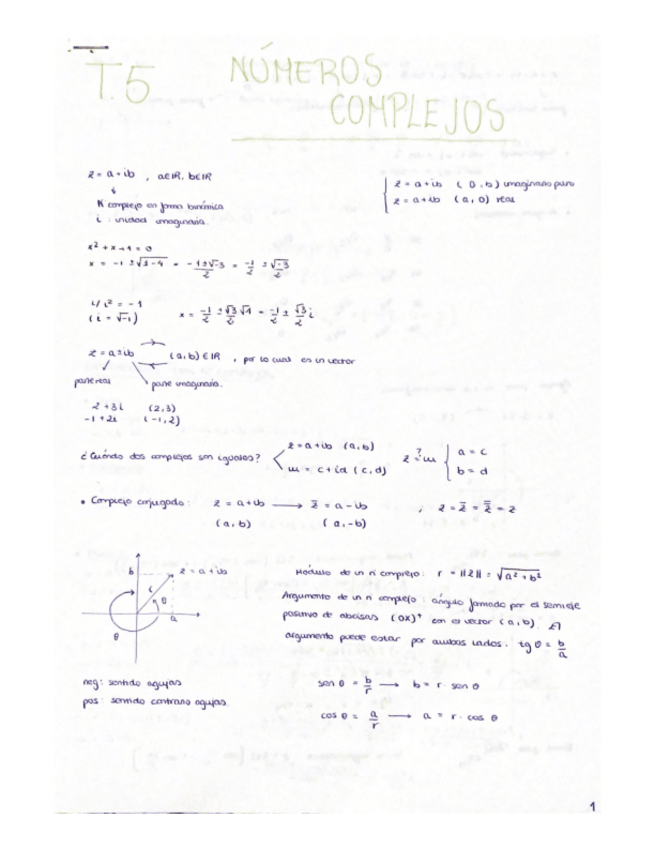 T.5 NÚMEROS
COMPLEJOS
z = a + ib , a∈IR, b∈IR
↓
N complejo en forma binómica
i : unidad imaginaria.
z = a + ib (0, b) imaginario puro
z = a + ib (a, 0) real
x² + x + 1 = 0
x = -1 ± √1-4 = -1 ± √-3 / 2 = -1/2 ± √-3 / 2
i / i² = -1
(i = √-1)
x = -1/2 ± √3 √1 / 2 = -1/2 ± √3/2 i
z = a ± ib (a, b) ∈ IR , por lo cual es un vector
parte real parte imaginaria.
2 + 3i (2, 3)
-1 + 2i (-1, 2)
¿Cuándo dos complejos son iguales?
z = a + ib (a, b)
w = c + id (c, d)
z =? w
a = c
b = d
• Complejo conjugado: z = a + ib → z̄ = a - ib , z = z̄ = z̿ = z
(a, b) (a, -b)
b z = a + ib
r
θ
a
θ
Módulo de un n complejo: r = ||z|| = √a² + b²
Argumento de un n complejo: ángulo formado por el semieje
positivo de abcisas (OX)⁺ con el vector (a, b). El
argumento puede estar por ambos lados. tg θ = b/a
neg: sentido agujas
pos: sentido contrario agujas.
sen θ = b/r → b = r · sen θ
cos θ = a/r → a = r · cos θ
1